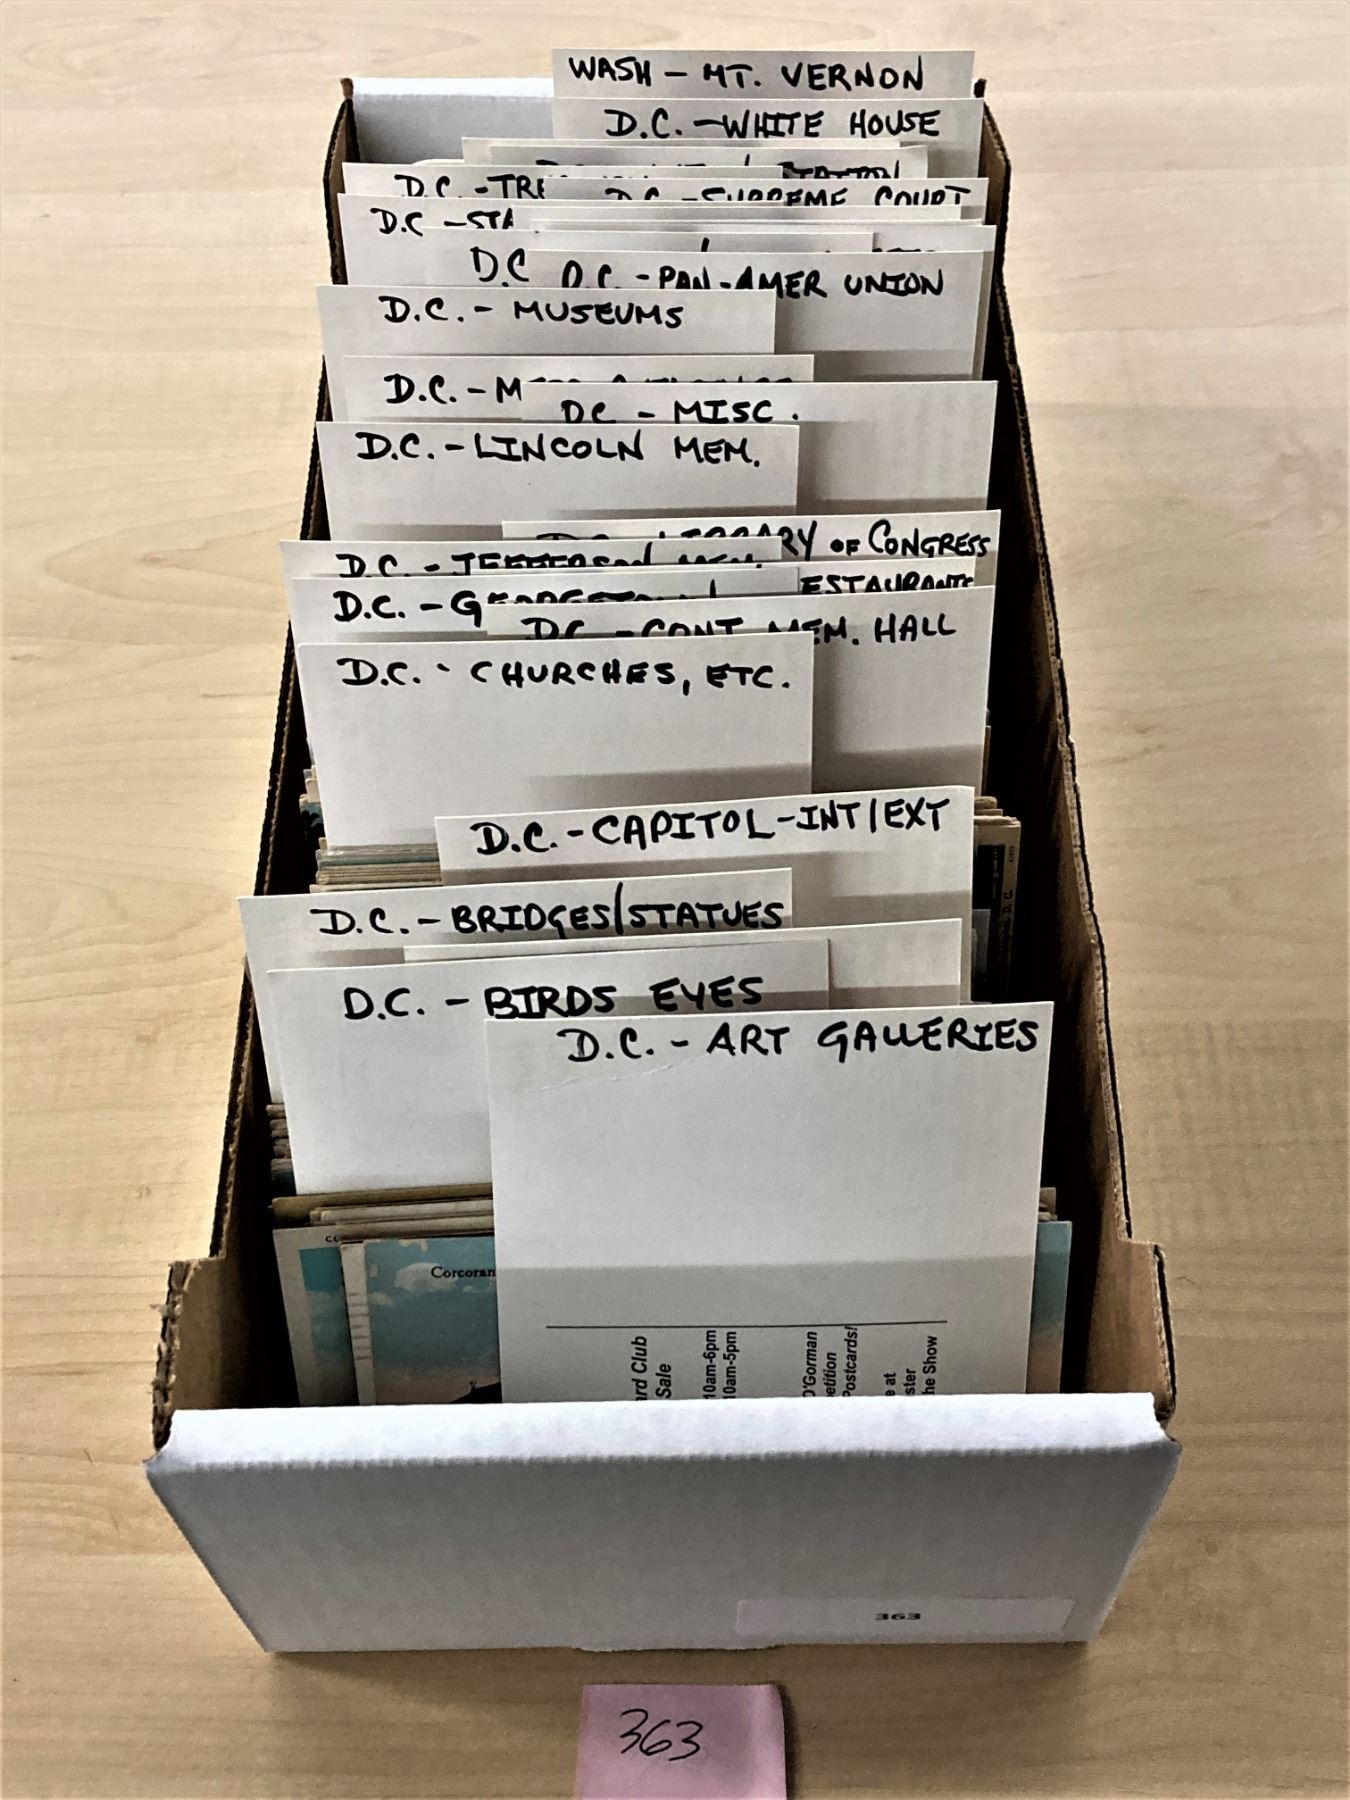 WASH - MT. VERNON
D.C. - WHITE HOUSE
D.C. - TRE
D.C. - SUPREME COURT
D.C - STA
D.C
D.C. - PAN-AMER UNION
D.C. - MUSEUMS
D.C. - M
DC - MISC.
D.C. - LINCOLN MEM.
LIBRARY OF CONGRESS
D.C. - JEFFERSON MEM.
ESTAURANTS
D.C. - GEORGETOWN
D.C. - CONT. MEM. HALL
D.C. - CHURCHES, ETC.
D.C. - CAPITOL - INT/EXT
D.C. - BRIDGES/STATUES
D.C. - BIRDS EYES
D.C. - ART GALLERIES
Corcoran
ard Club
Sale
10am-6pm
10am-5pm
O'Gorman
etition
Postcards!
e at
ster
he Show
363
363